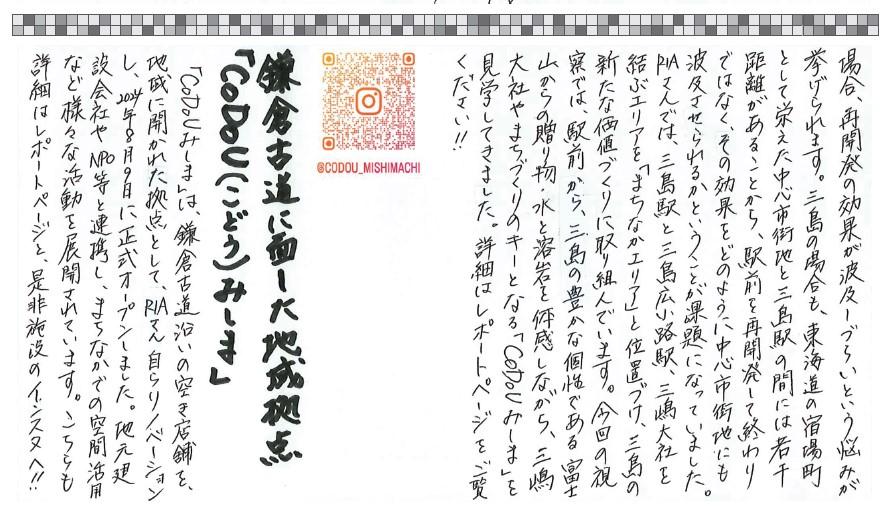 場合、再開発の効果が波及しづらいという悩みが
挙げられます。三島の場合も、東海道の宿場町
として栄えた中心市街地と三島駅の間には若干
距離があることから、駅前を再開発して終わり
ではなく、その効果をどのように中心市街地にも
波及させられるかということが課題になっていました。
RIAさんでは、三島駅と三島広小路駅、三嶋大社を
結ぶエリアを「まちなかエリア」と位置づけ、三島の
新たな価値づくりに取り組んでいます。今回の視
察では、駅前から、三島の豊かな個性である富士
山からの贈り物・水と溶岩を体感しながら、三嶋
大社やまちづくりのキーとなる「CoDoUみしま」を
見学してきました。詳細はレポートページをご覧
ください!!
@CODOU_MISHIMACHI
鎌倉古道に面した地域拠点
「CoDoU(こどう)みしま」
「CoDoUみしま」は、鎌倉古道沿いの空き店舗を、
地域に開かれた拠点として、RIAさん自らリノベーション
し、2024年8月9日に正式オープンしました。地元建
設会社やNPO等と連携し、まちなかでの空間活用
など様々な活動を展開されています。こちらも
詳細はレポートページと、是非施設のインスタへ!!